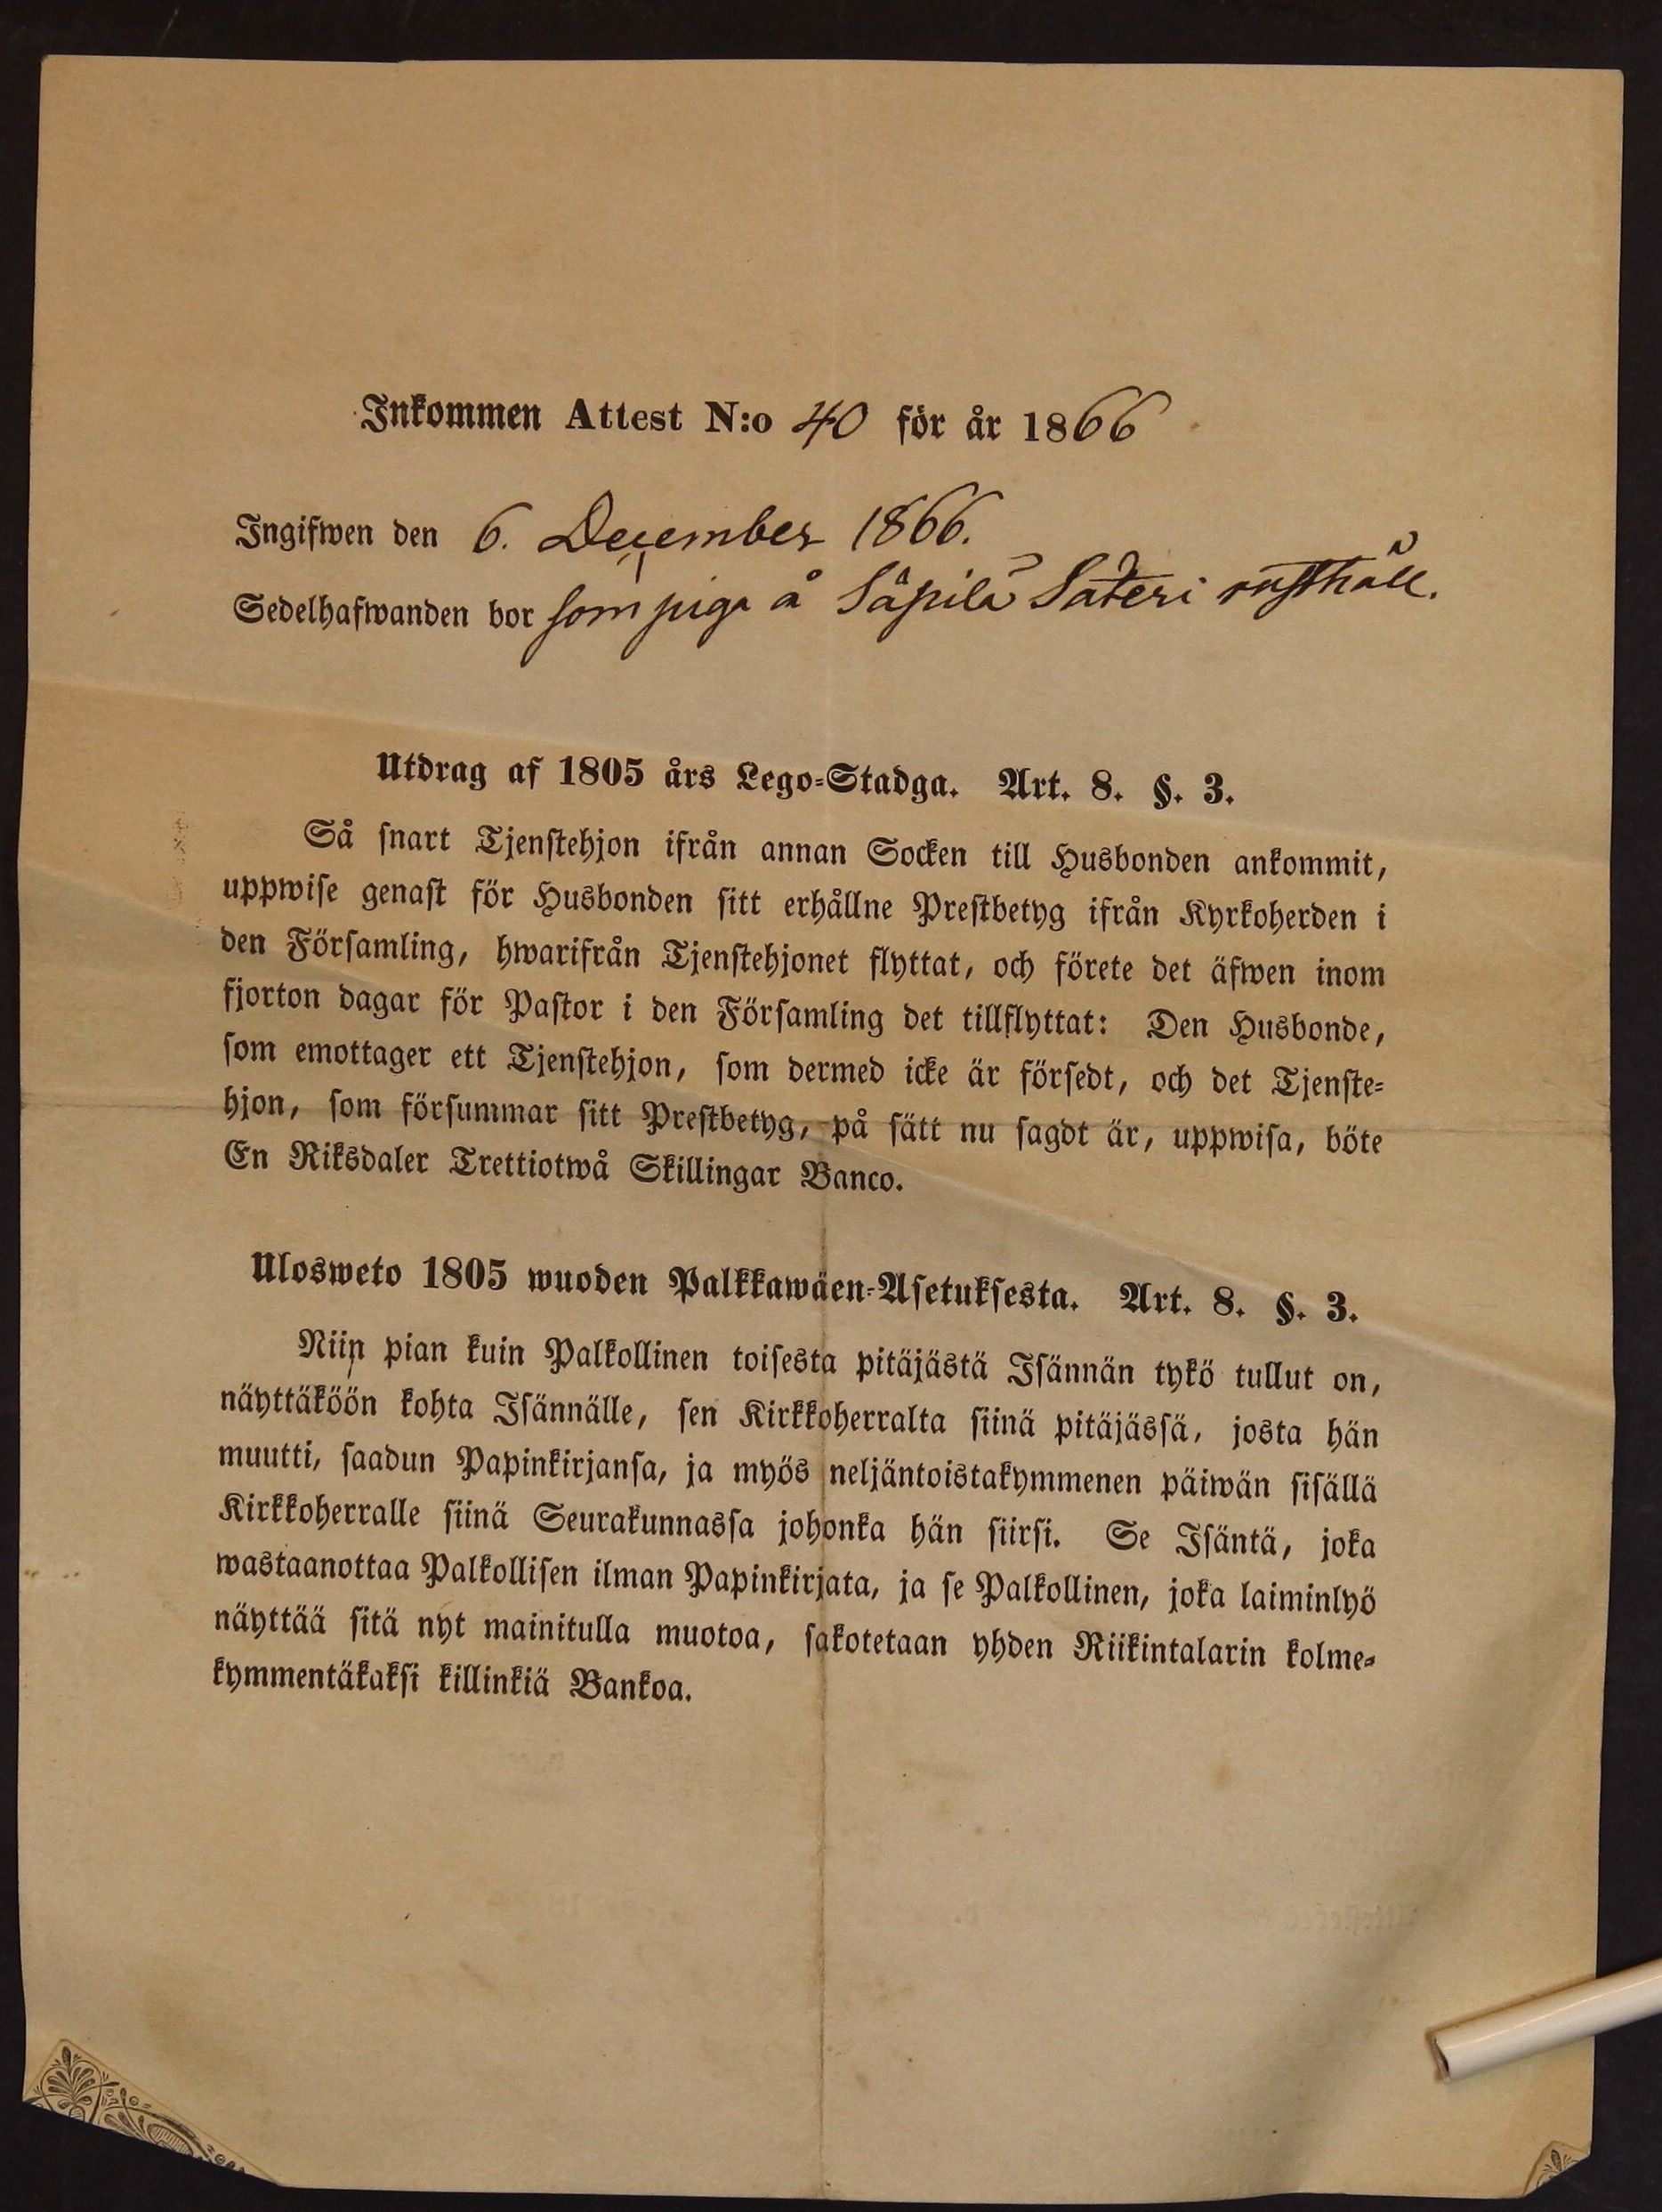 Inkommen Attest N:o 40 för år 1866
Ingifwen den 6. December 1866.
Sedelhafwanden bor som piga å Säpilä Säteri rusthåll.
Utdrag af 1805 års Lego-Stadga. Art. 8. §. 3.
Så snart Tjenstehjon ifrån annan Socken till Husbonden ankommit,
uppwise genast för Husbonden sitt erhållne Prestbetyg ifrån Kyrkoherden i
den Församling, hwarifrån Tjenstehjonet flyttat, och förete det äfwen inom
fjorton dagar för Pastor i den Församling det tillflyttat: Den Husbonde,
som emottager ett Tjenstehjon, som dermed icke är försedt, och det Tjenste-
hjon, som försummar sitt Prestbetyg, på sätt nu sagdt är, uppwisa, böte
En Riksdaler Trettiotwå Skillingar Banco.
Ulosweto 1805 wuoden Palkkawäen-Asetuksesta. Art. 8. §. 3.
Niin pian kuin Palkollinen toisesta pitäjästä Isännän tykö tullut on,
näyttäköön kohta Isännälle, sen Kirkkoherralta siinä pitäjässä, josta hän
muutti, saadun Papinkirjansa, ja myös neljäntoistakymmenen päiwän sisällä
Kirkkoherralle siinä Seurakunnassa johonka hän siirsi. Se Isäntä, joka
wastaanottaa Palkollisen ilman Papinkirjata, ja se Palkollinen, joka laiminlyö
näyttää sitä nyt mainitulla muotoa, sakotetaan yhden Riikintalarin kolme-
kymmentäkaksi killinkiä Bankoa.